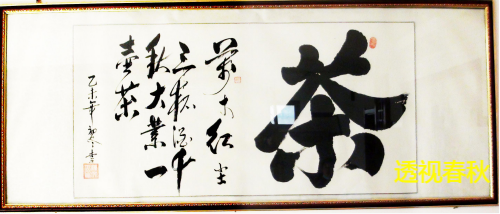 茶
萬丈红尘
三杯酒千
秋大業一
壶茶
乙未年
透视春秋